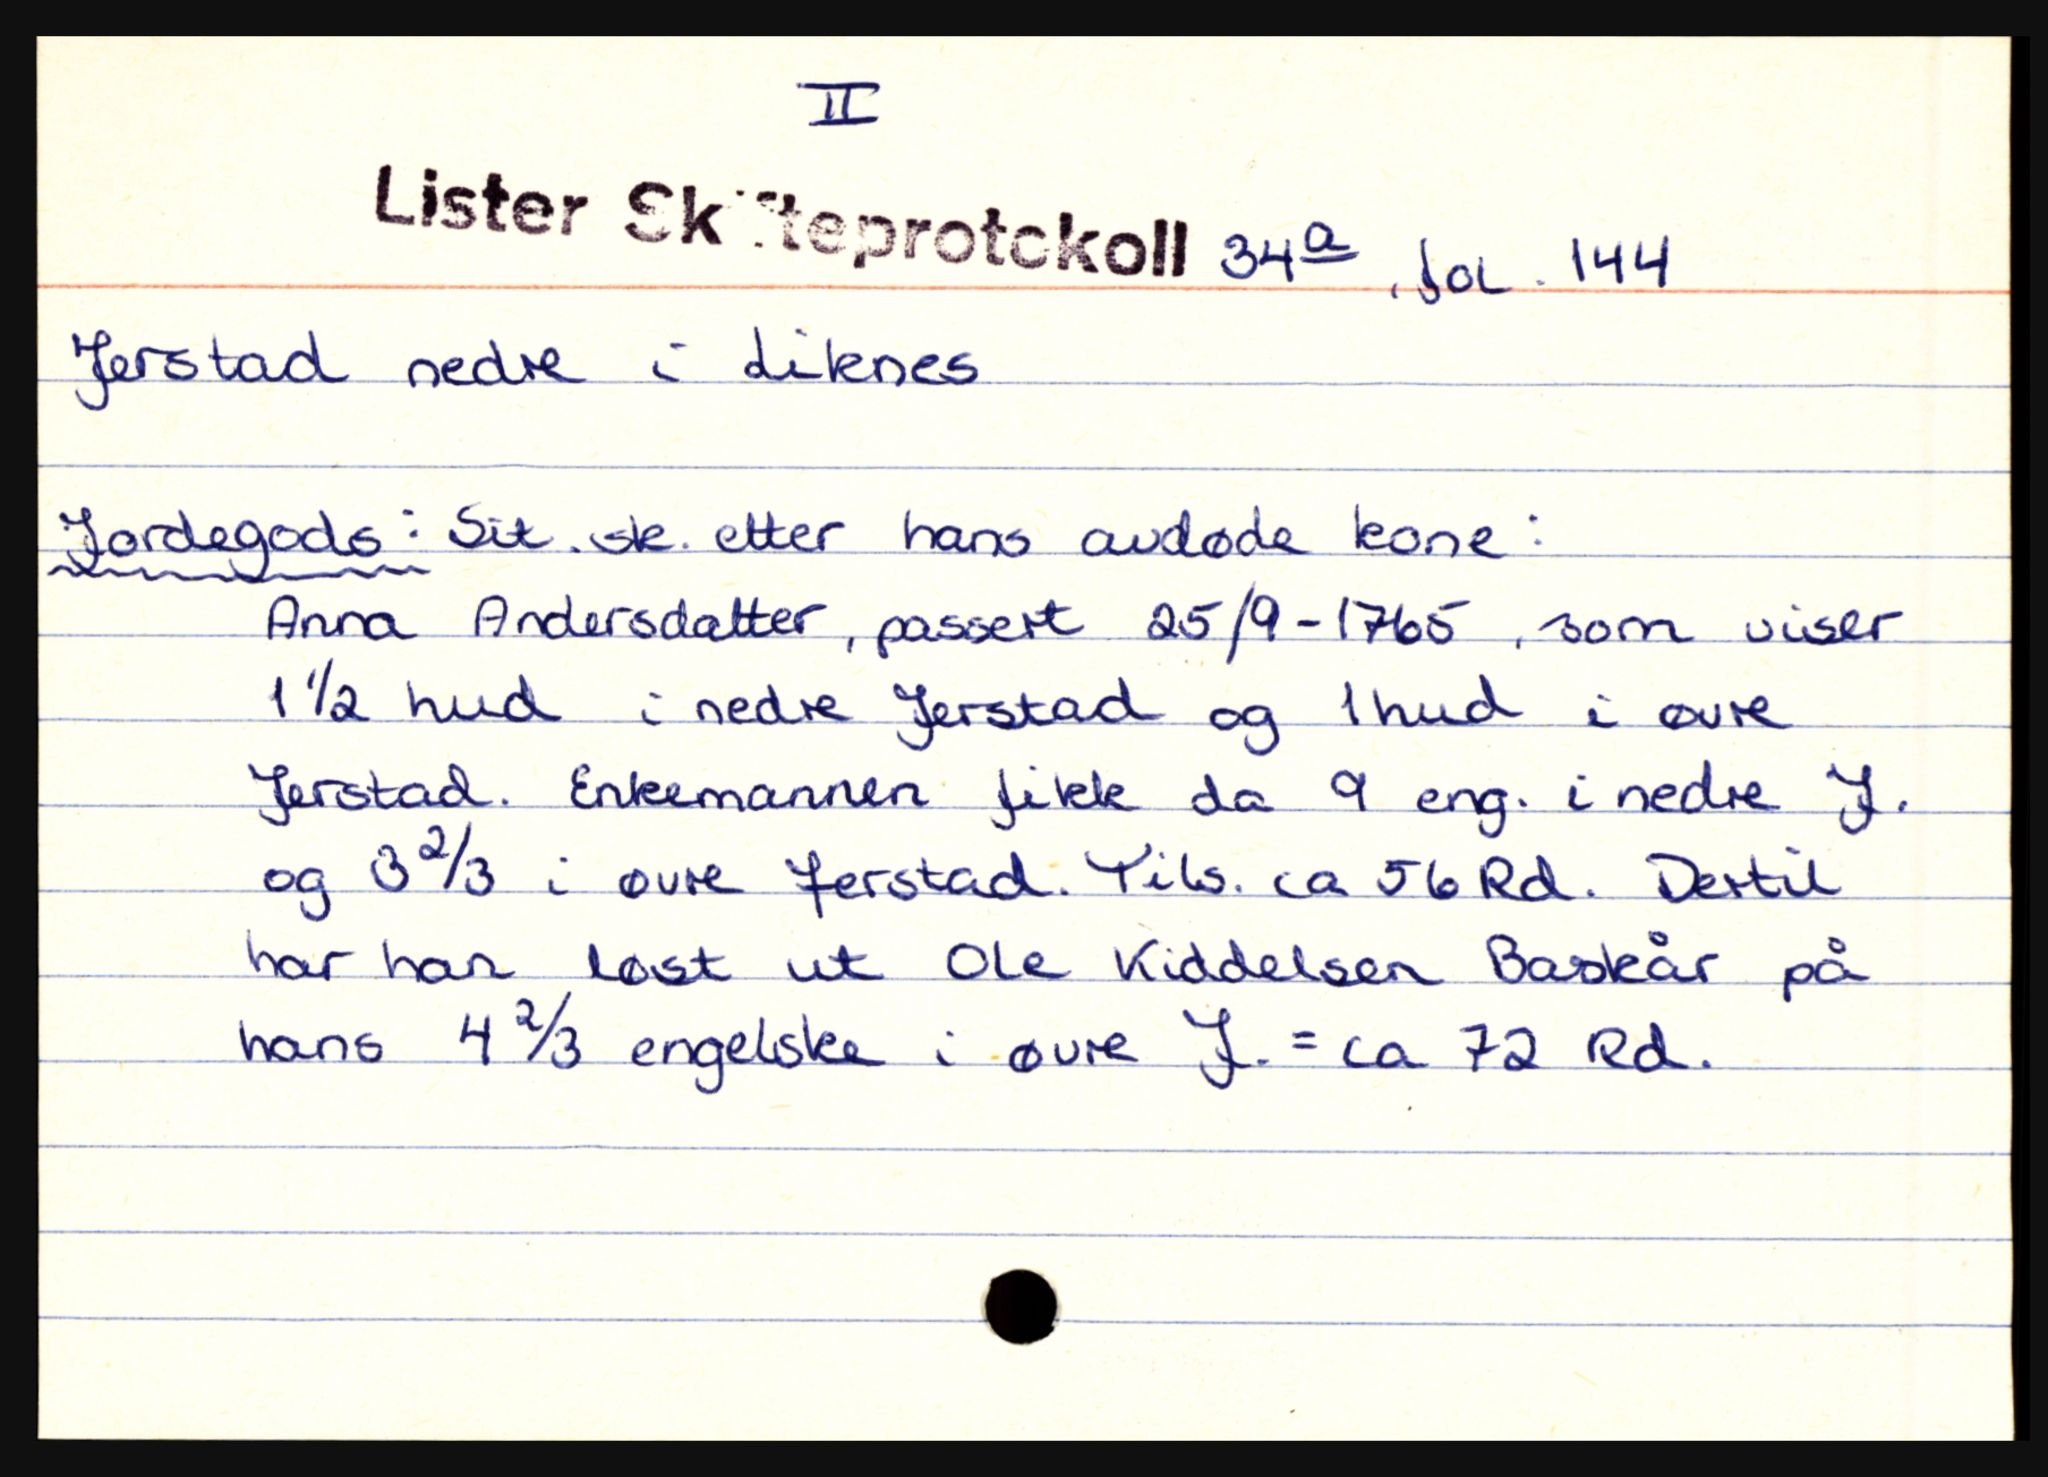 II
Lister Skifteprotokoll 34a, fol. 144
Jerstad nedre i Liknes
Jordegods: Sit. sk. etter hans avdøde kone:
Anna Andersdatter, passert 25/9-1765, som viser
1 1/2 hud i nedre Jerstad og 1 hud i øvre
Jerstad. Enkemannen fikk da 9 eng. i nedre J.
og 3 2/3 i øvre Jerstad. Tils. ca 56 Rd. Dertil
har han løst ut Ole Kiddelsen Baskår på
hans 4 2/3 engelske i øvre J. = ca 72 Rd.